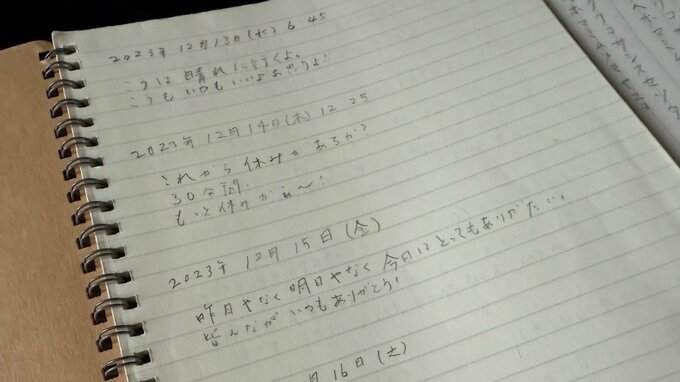 2023年 12月13日(水) 6 45
晴れ に行くよ。
こうも いつもいいよ おもうよ!
2023年 12月14日(木) 12 25
これから 休みか あるか?
30分間.
もっと 休みが あ〜!
2023年 12月 15日(金)
昨日やなく 明日やなく 今日は とってもありがたい。
皆んなが いつもありがとう!
月16日(土)